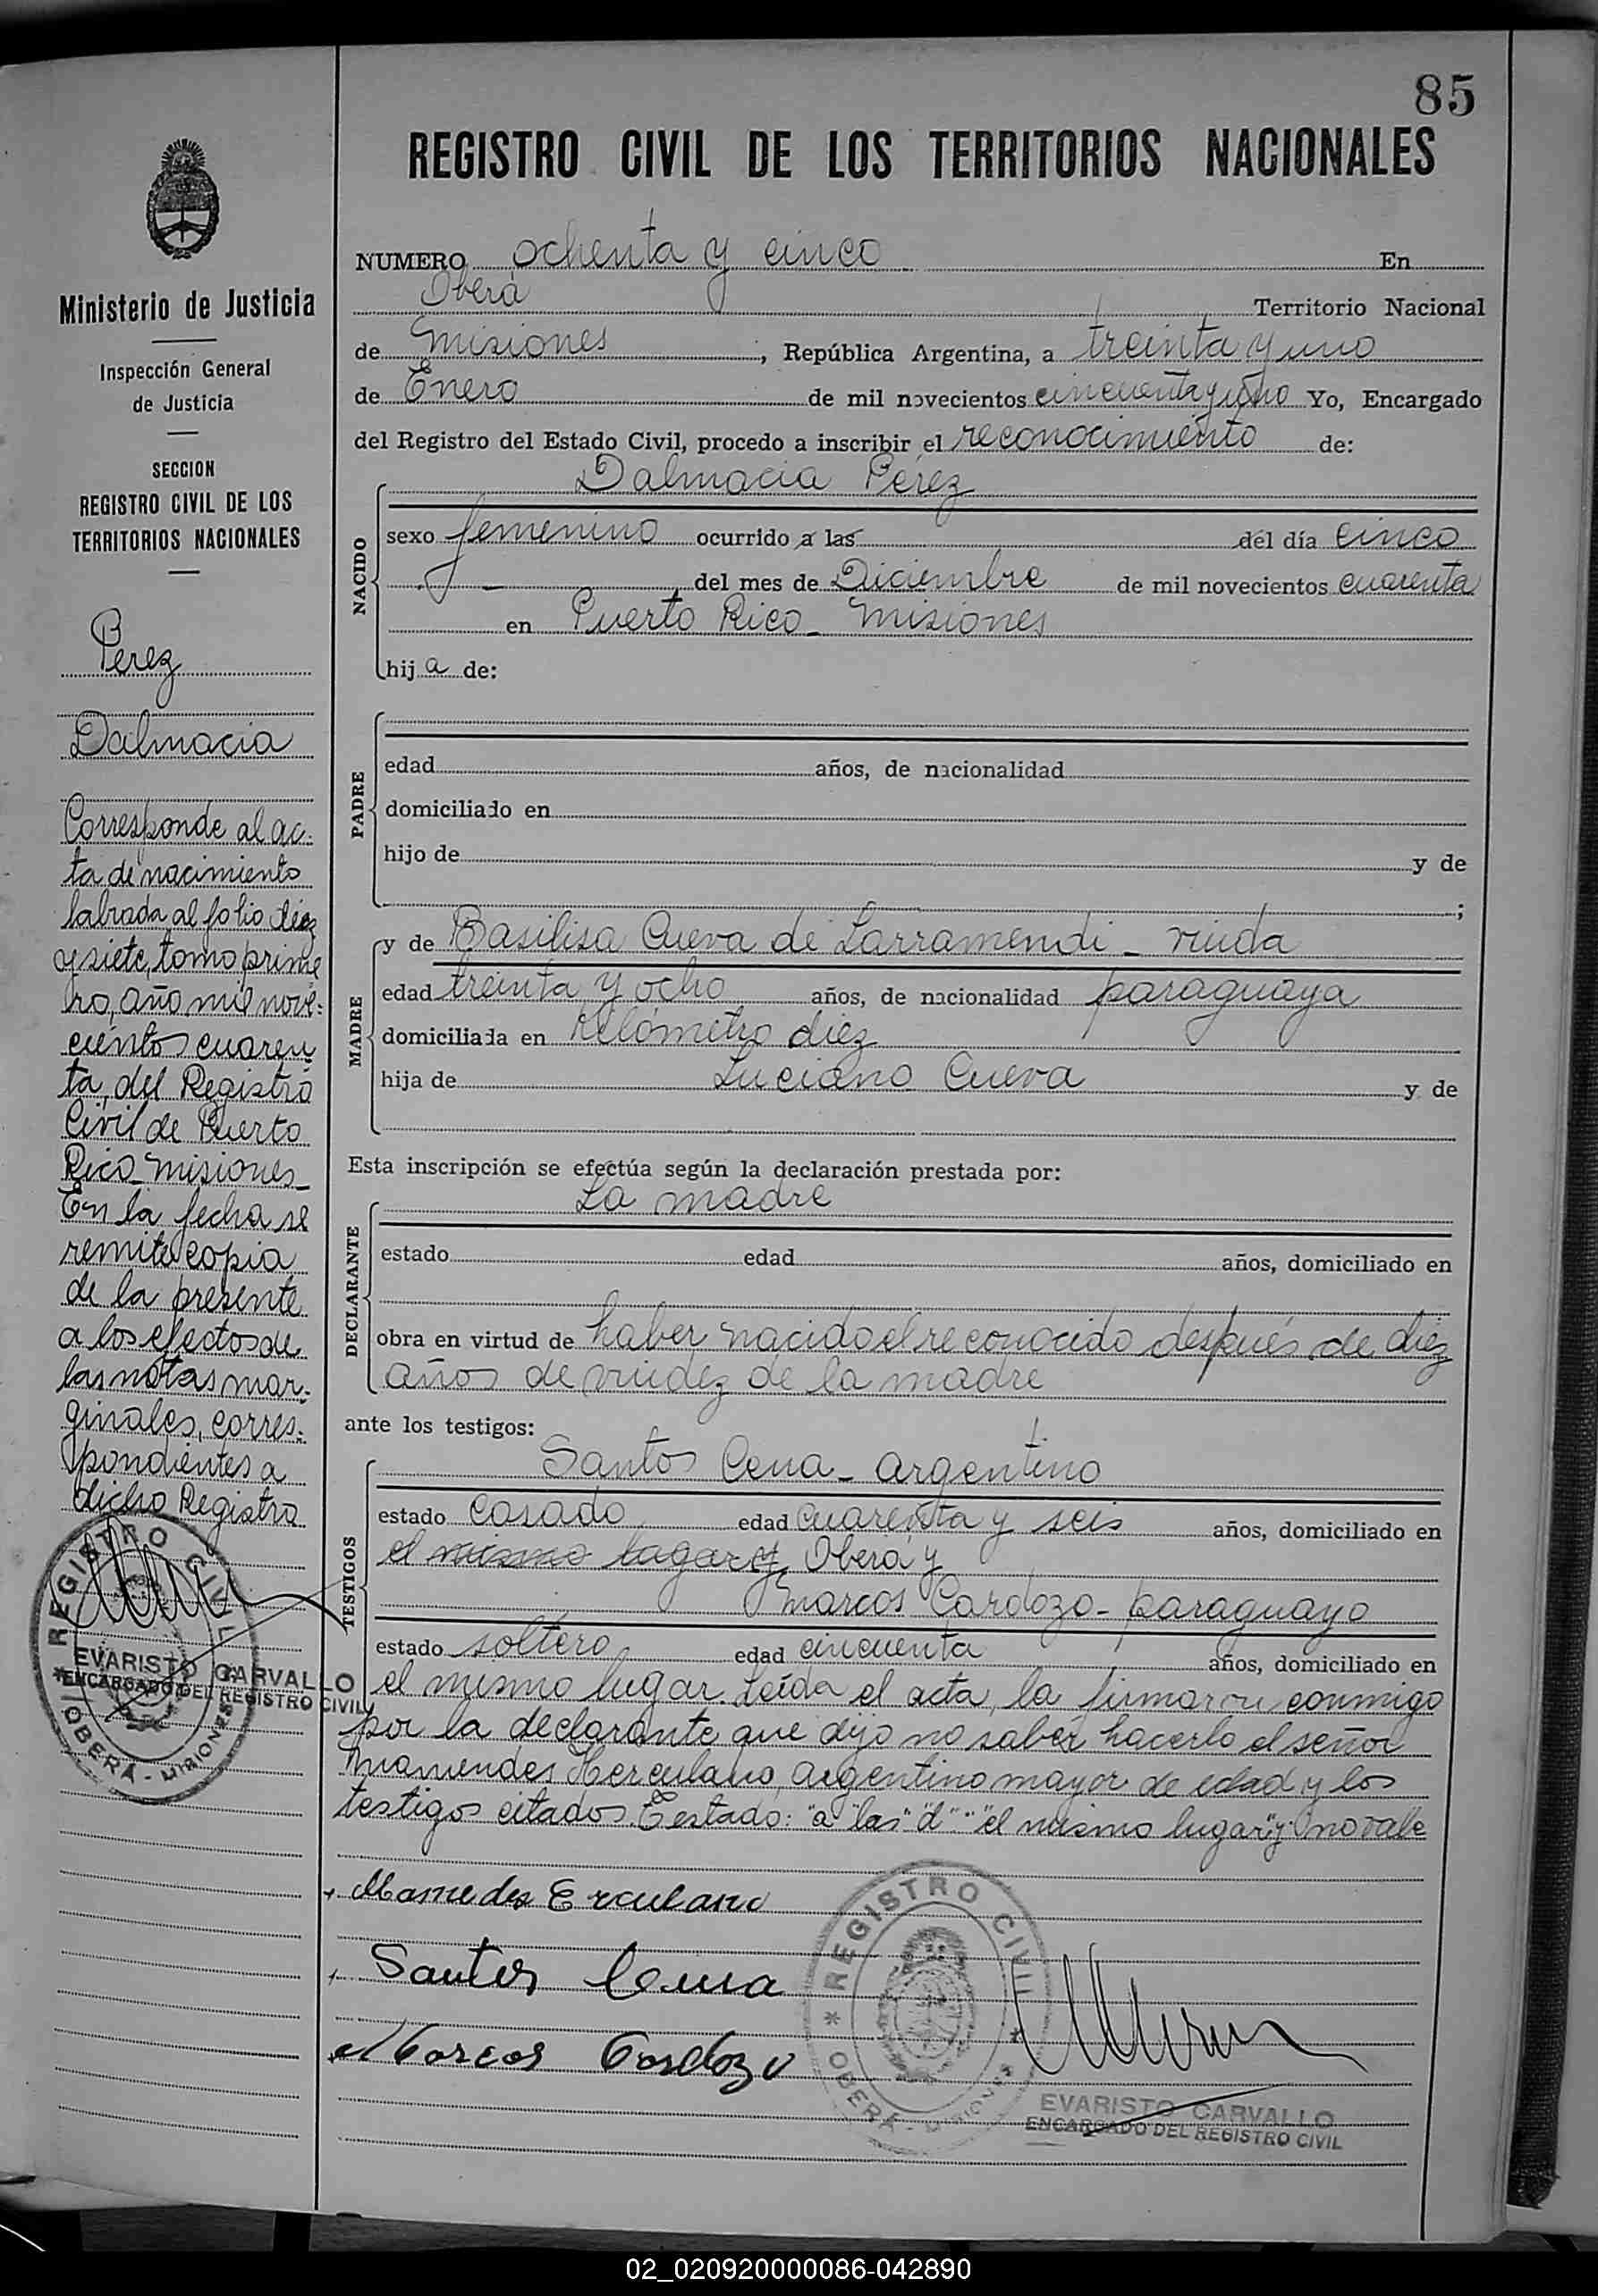 85
REGISTRO CIVIL DE LOS TERRITORIOS NACIONALES
NUMERO ochenta y cinco En
Oberá Territorio Nacional
de Misiones, República Argentina, a treinta y uno
de Enero de mil novecientos cincuenta y uno Yo, Encargado
del Registro del Estado Civil, procedo a inscribir el reconocimiento de:
Dalmacia Perez
NACIDO
sexo femenino ocurrido a las del día cinco
del mes de Diciembre de mil novecientos cuarenta
en Puerto Rico - Misiones
hija de:
PADRE
edad años, de nacionalidad
domiciliado en
hijo de y de
;
MADRE
y de Basilisa Cueva de Larramendi - viuda
edad treinta y ocho años, de nacionalidad paraguaya
domiciliada en Kilómetro diez
hija de Luciano Cueva y de
Esta inscripción se efectúa según la declaración prestada por:
La madre
DECLARANTE
estado edad años, domiciliado en
obra en virtud de haber nacido el reconocido después de diez
años de viudez de la madre
ante los testigos:
TESTIGOS
Santos Cena - argentino
estado casado edad cuarenta y seis años, domiciliado en
el mismo lugar y Oberá y
Marcos Cardozo - paraguayo
estado soltero edad cincuenta años, domiciliado en
el mismo lugar. Leída el acta, la firmaron conmigo
por la declarante que dijo no saber hacerlo el señor
Mamendes Herculano, argentino mayor de edad y los
testigos citados. Testado: "a" las" "d"." "el mismo lugar" y" no vale
Mamedes Erculano
Santos Cena
Marcos Cardozo
REGISTRO CIVIL
* OBERÁ - MISIONES *
EVARISTO CARVALLO
ENCARGADO DEL REGISTRO CIVIL
Ministerio de Justicia
Inspección General
de Justicia
SECCION
REGISTRO CIVIL DE LOS
TERRITORIOS NACIONALES
Perez
Dalmacia
Corresponde al ac-
ta de nacimiento
labrada al folio diez
y siete, tomo prime
ro, año mil nove-
cientos cuaren
ta, del Registro
Civil de Puerto
Rico Misiones_
En la fecha se
remite copia
de la presente
a los efectos de
las notas mar-
ginales, corres-
pondientes a
dicho Registro
REGISTRO CIVIL
OBERÁ - MISIONES
EVARISTO CARVALLO
ENCARGADO DEL REGISTRO CIVIL
02_020920000086-042890